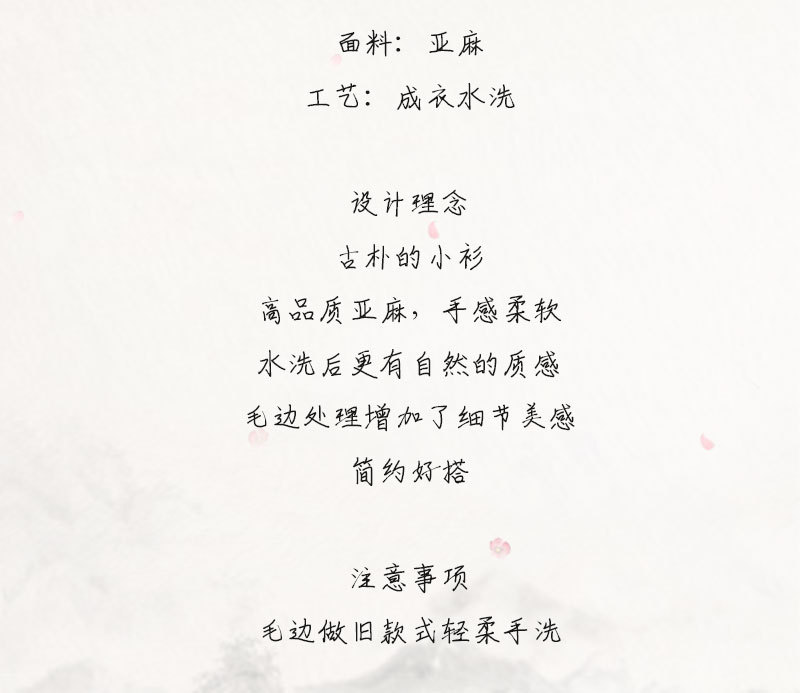 面料： 亚麻
工艺： 成衣水洗
设计理念
古朴的小衫
高品质亚麻，手感柔软
水洗后更有自然的质感
毛边处理增加了细节美感
简约好搭
注意事项
毛边做旧款式轻柔手洗